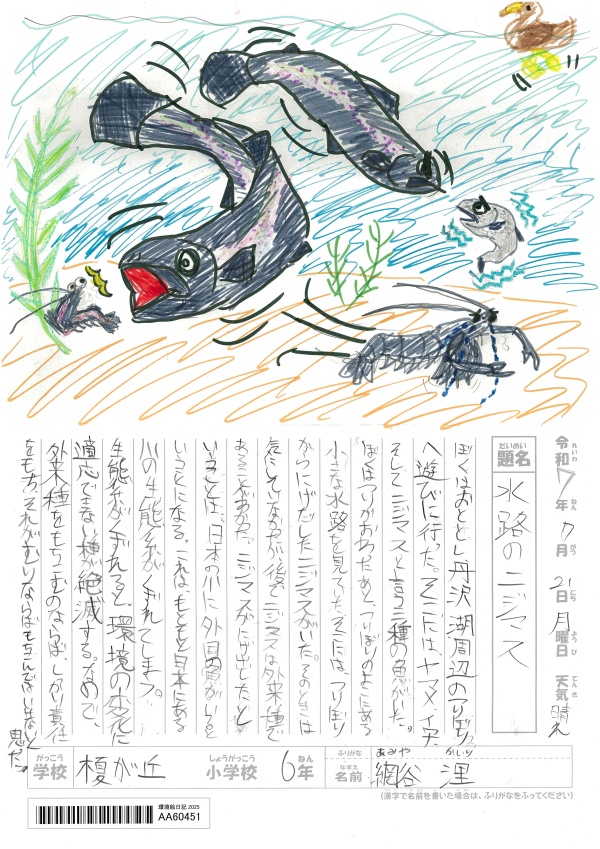 令和7年7月21日月曜日 天気 晴れ
れいわ ねん がつ にち ようび てんき
だいめい
題名 水路のニジマス
ぼくはおととし丹沢湖周辺のつりぼり
へ遊びに行った。そこには、ヤマメ、イワナ、
そしてニジマスと言う三種の魚がいた。
ぼくはつりがおわったあと、つりぼりのよこにある
小さな水路を見ていた。そこには、つりぼり
からにげだしたニジマスがいた。そのときは
気にしてなかったが後でニジマスは外来種で
あることがわかった。ニジマスがにげだしたと
いうことは、日本の川に外国の魚がいると
いうことになる。これは、もともと日本にある
川の生態系がくずれてしまう。
生態系がくずれると、環境の変化に
適応できない種が絶滅する。なので、
外来種をもちこむのならば、しっかり責任
をもち、それがむりならばもちこんではいけないと
思った。
がっこう
学校 榎が丘
しょうがっこう
小学校 6年
ねん
ふりがな あみや かいり
なまえ
名前 網谷 浬
(漢字で名前を書いた場合は、ふりがなをふってください)
環境絵日記 2025
AA60451